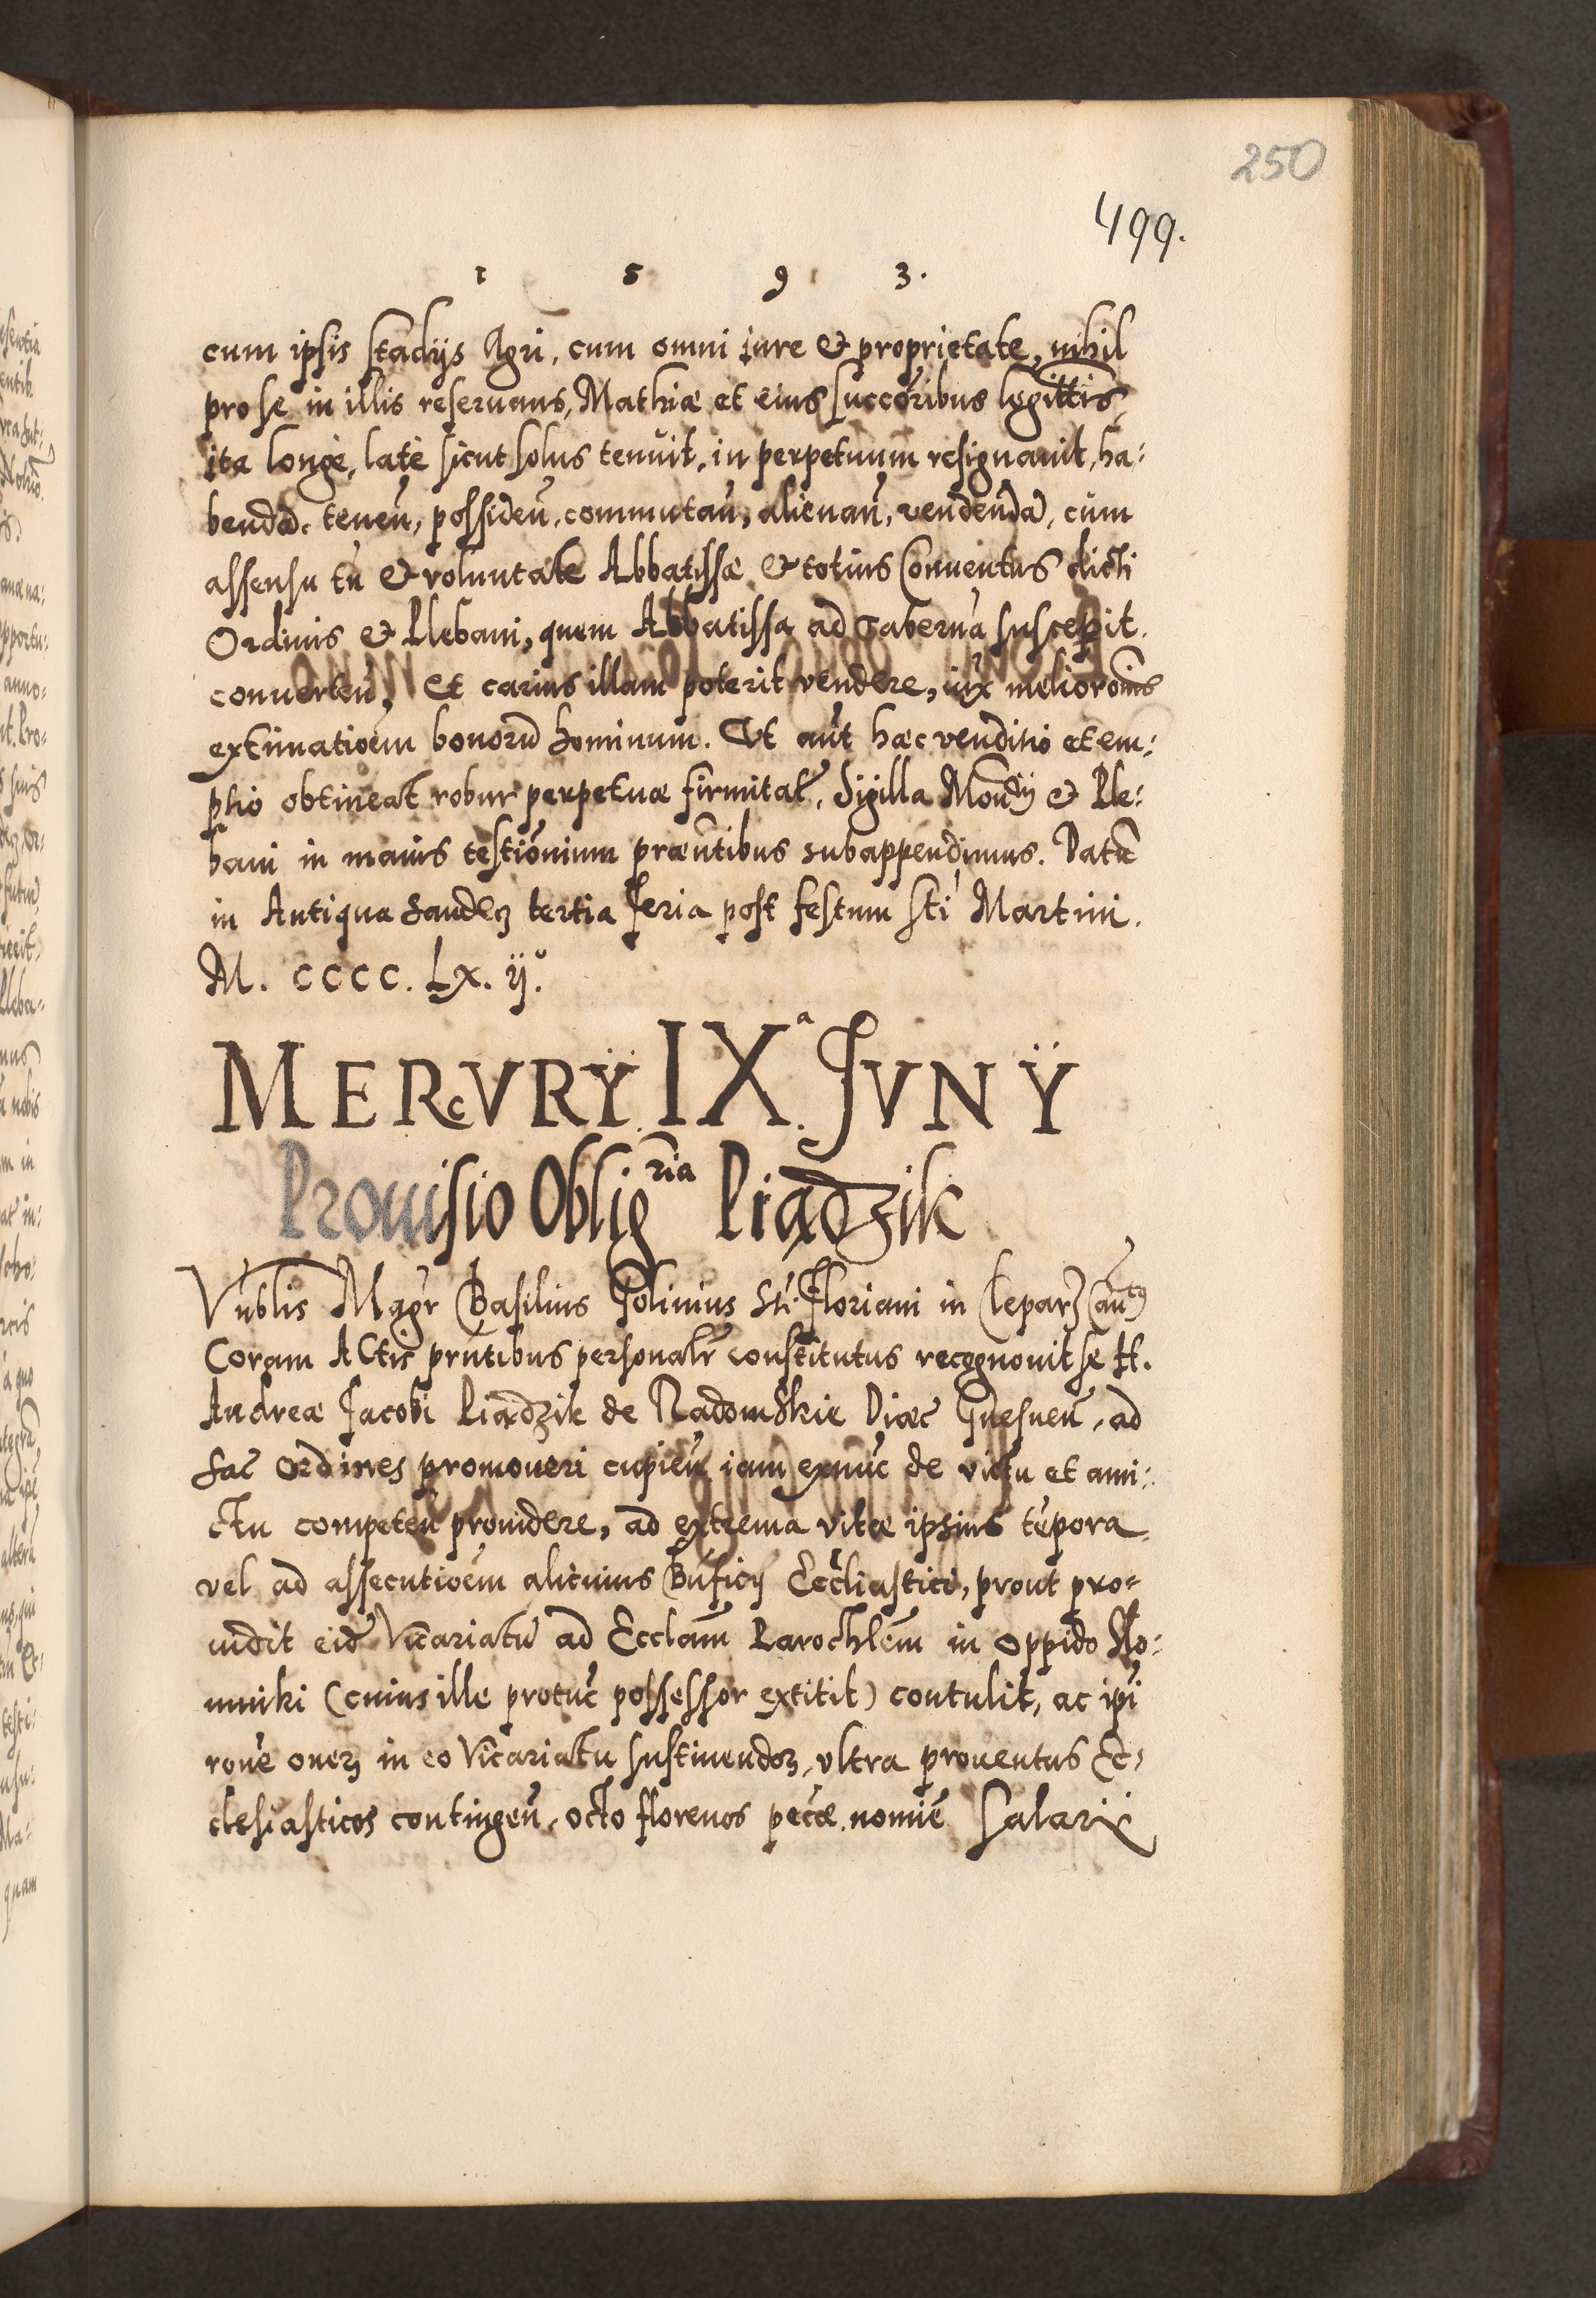 250
499.
1 5 9 3.
cum ipsis stadijs Agri, cum omni iure & proprietate, nihil
pro se in illis reseruans, Mathiæ et eius succoribus legittis,
ita longè, latè sicut solus tenuit, in perpetuum resignauit, ha:
benda. teneñ, possideñ, commutañ, alienañ, vendenda, cùm
assensu tñ & voluntate Abbatissæ & totius Conuentus dicti
Ordinis & Plebani, quem Abbatissa ad Taberna suscepit.
conuerteñ, Et carius illam poterit vendere, iux meliorom̃
extimatioem bonorũ hominum. Vt aũt hæc venditio et em:
ptio obtineat robur perpetuæ firmitat, Sigilla Monrij & Ple:
bani in maius testiõnium præntibus subappendimus. Datũ
in Antiqua Sandecz tertia Feria post festum Sti Martini.
M. CCCC. LX. ij°.
MERCVRŸ. IXa. JVNŸ
Prouisio Obligria Piądzik
Vñblis Magr Basilius Golinius Sti. Floriani in Clepar: Cantus
Coram ACtis prñtibus personalr constitutus recognouit se H.
Andreæ Jacobi Piądzik de Radomskie Diæc Gnesneñ, ad
Sac Ordines promoueri cupieñ iam exnũc de victu et ami:
ctu competeñ prouidere, ad extrema vitæ ipsius tẽpora,
vel ad assecutioẽm alicuius Bñficij Eccliastici, prout pro=
uidit eidẽ Vicariatũ ad Ecclam̃ Parochlẽm in oppido Slo:
mniki (cuius ille protũc possessor extitit) contulit, ac ipi
rone onerũ in eo Vicariatu sustinendorũ, vltra prouentus Ec:
clesiasticos contingeñ, octo florenos pecæ. nomie Salarij